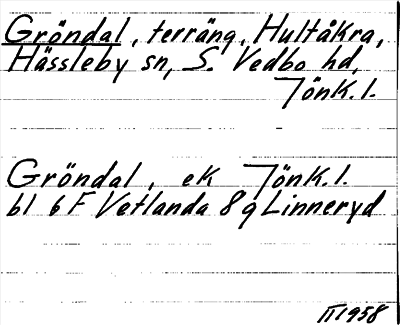 Gröndal, terräng, Hultåkra,
Hässleby sn, S. Vedbo hd,
Jönk. l.
Gröndal, ek Jönk. l.
bl 6 F Vetlanda 8 g Linneryd
II 1958